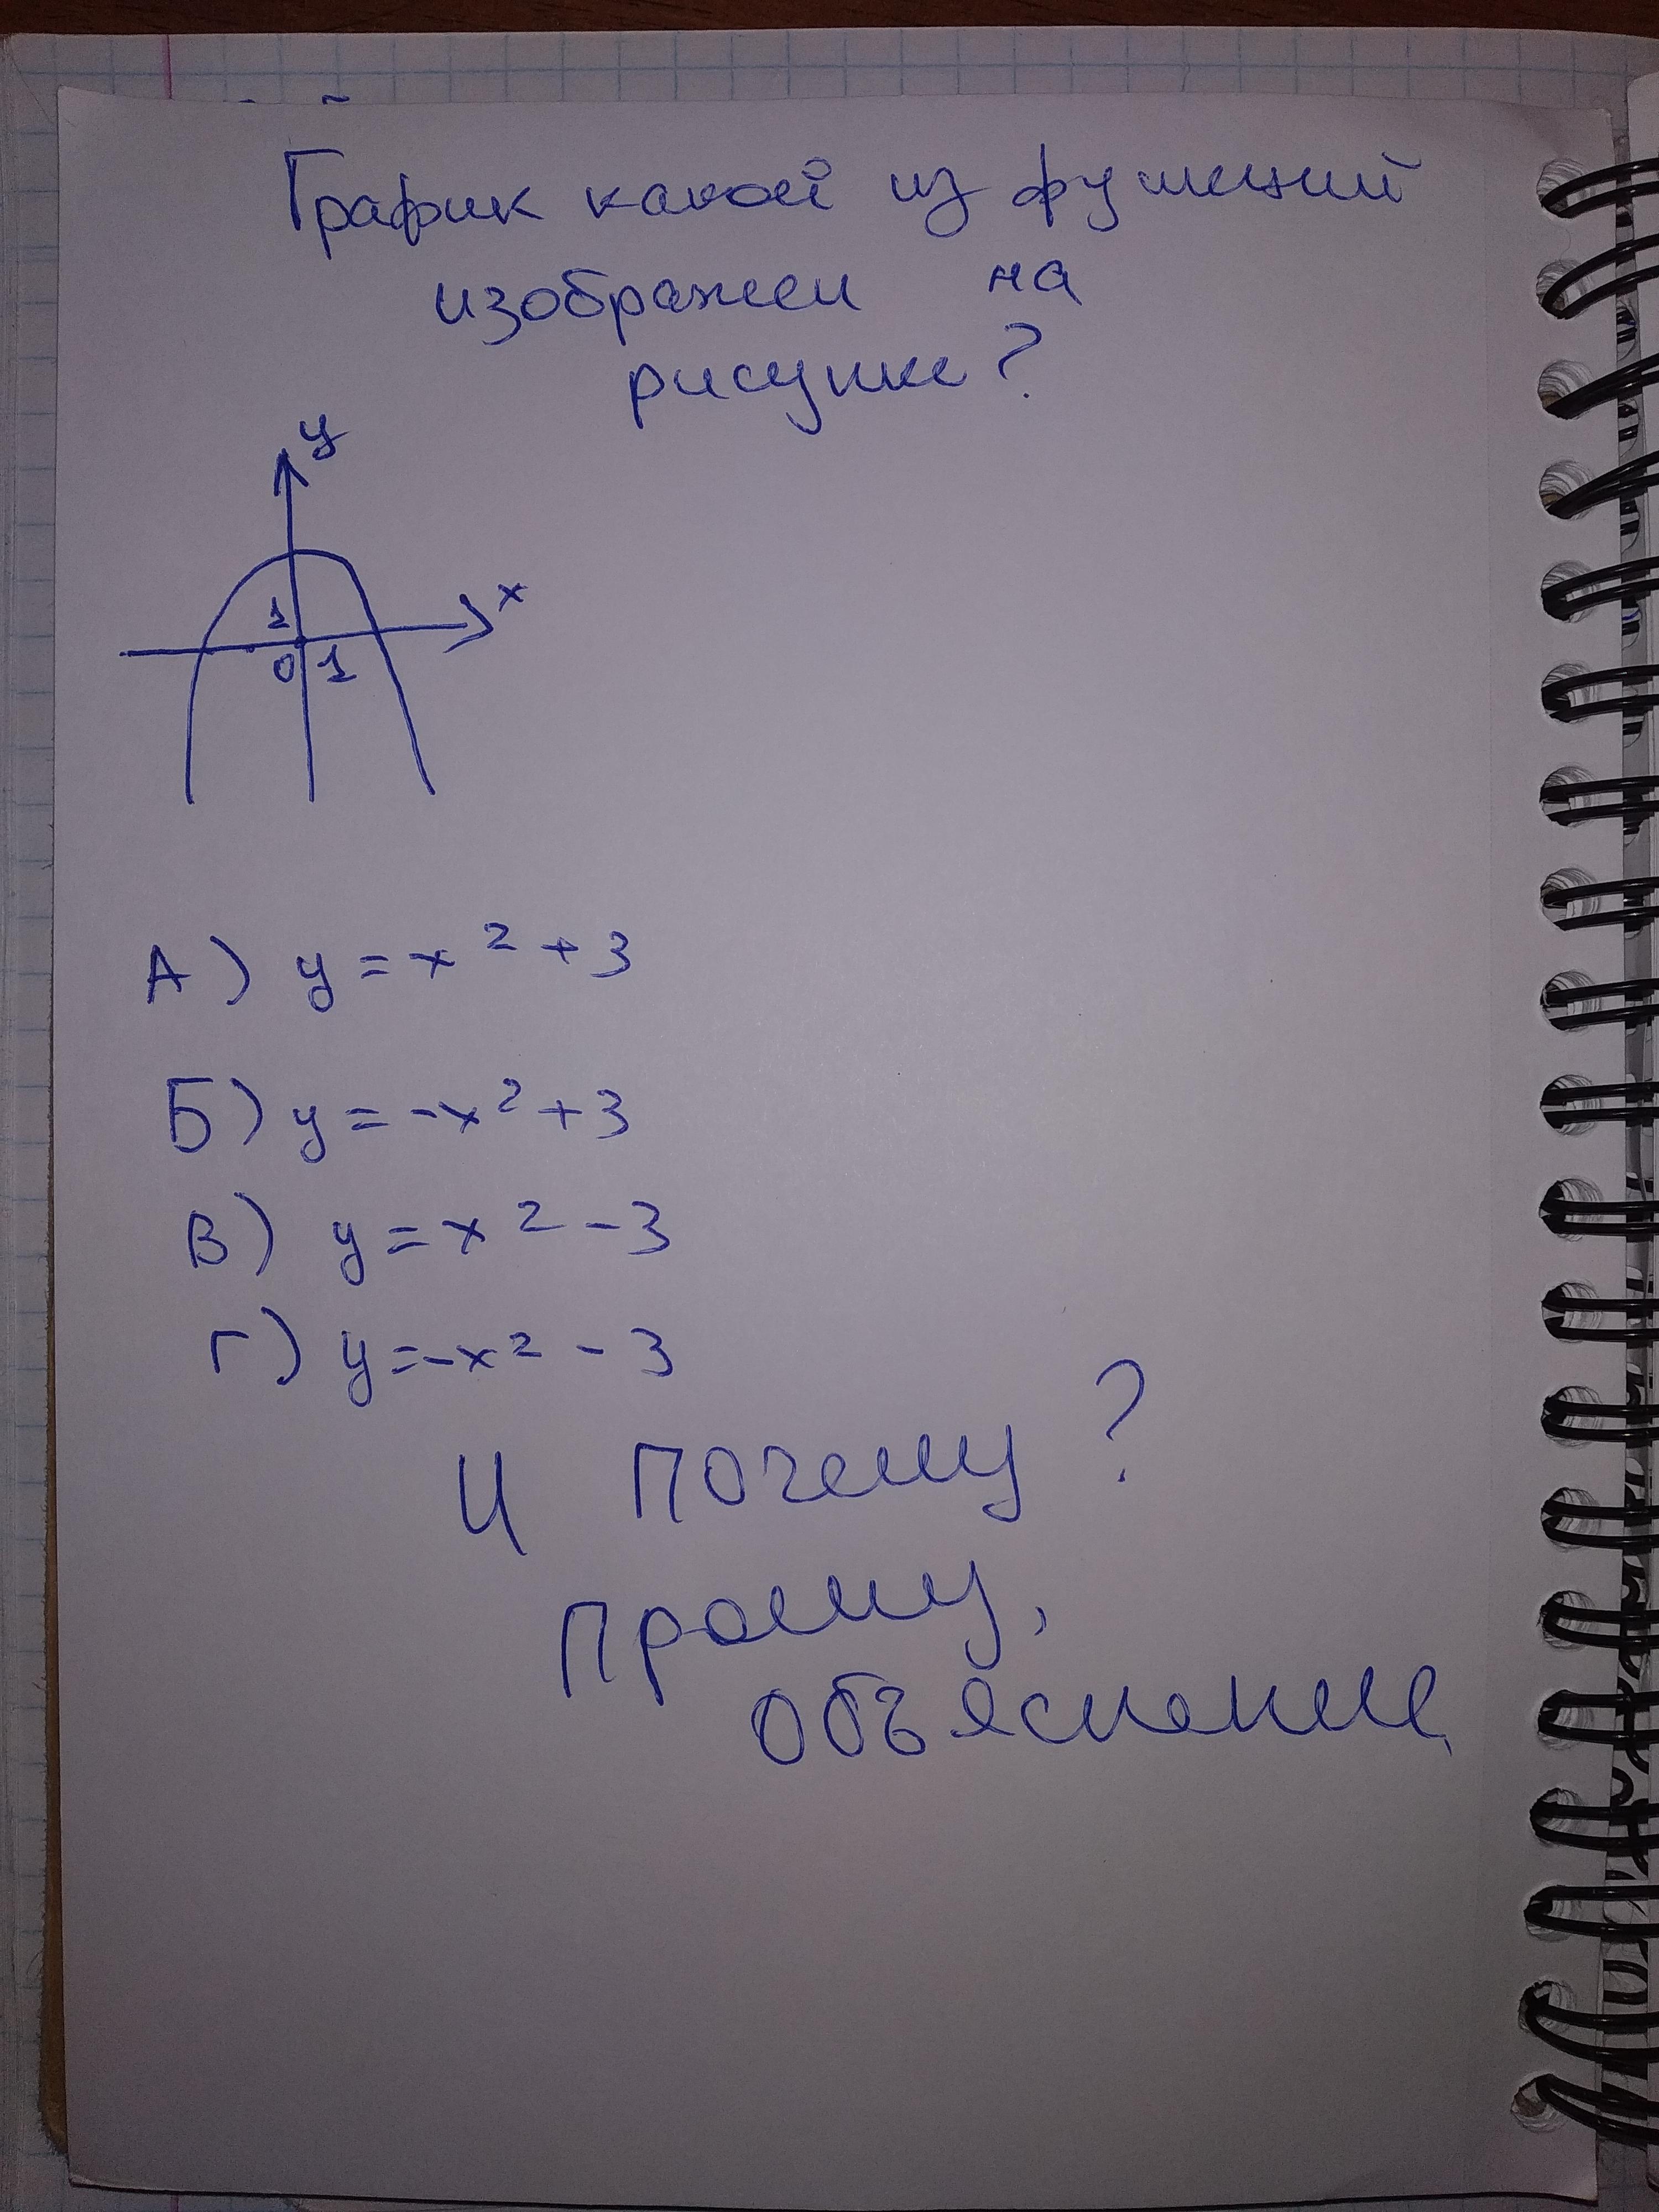 График какой из функций
изображен на
рисунке?
y
x
1
0 1
А) y = x² + 3
Б) y = -x² + 3
В) y = x² - 3
Г) y = -x² - 3
И почему?
Прошу,
объяснение